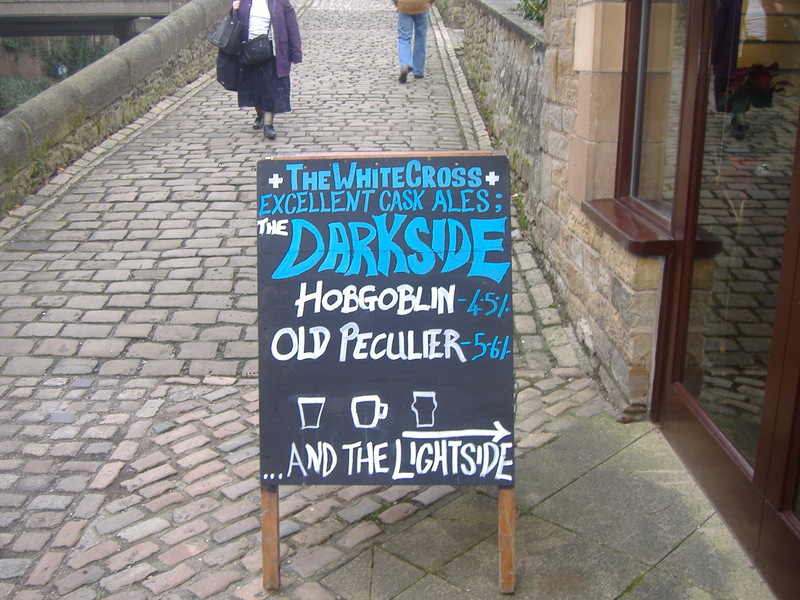 + THE WHITE CROSS +
EXCELLENT CASK ALES;
THE DARKSIDE
HOBGOBLIN - 4.5%
OLD PECULIER - 5.6%
...AND THE LIGHTSIDE